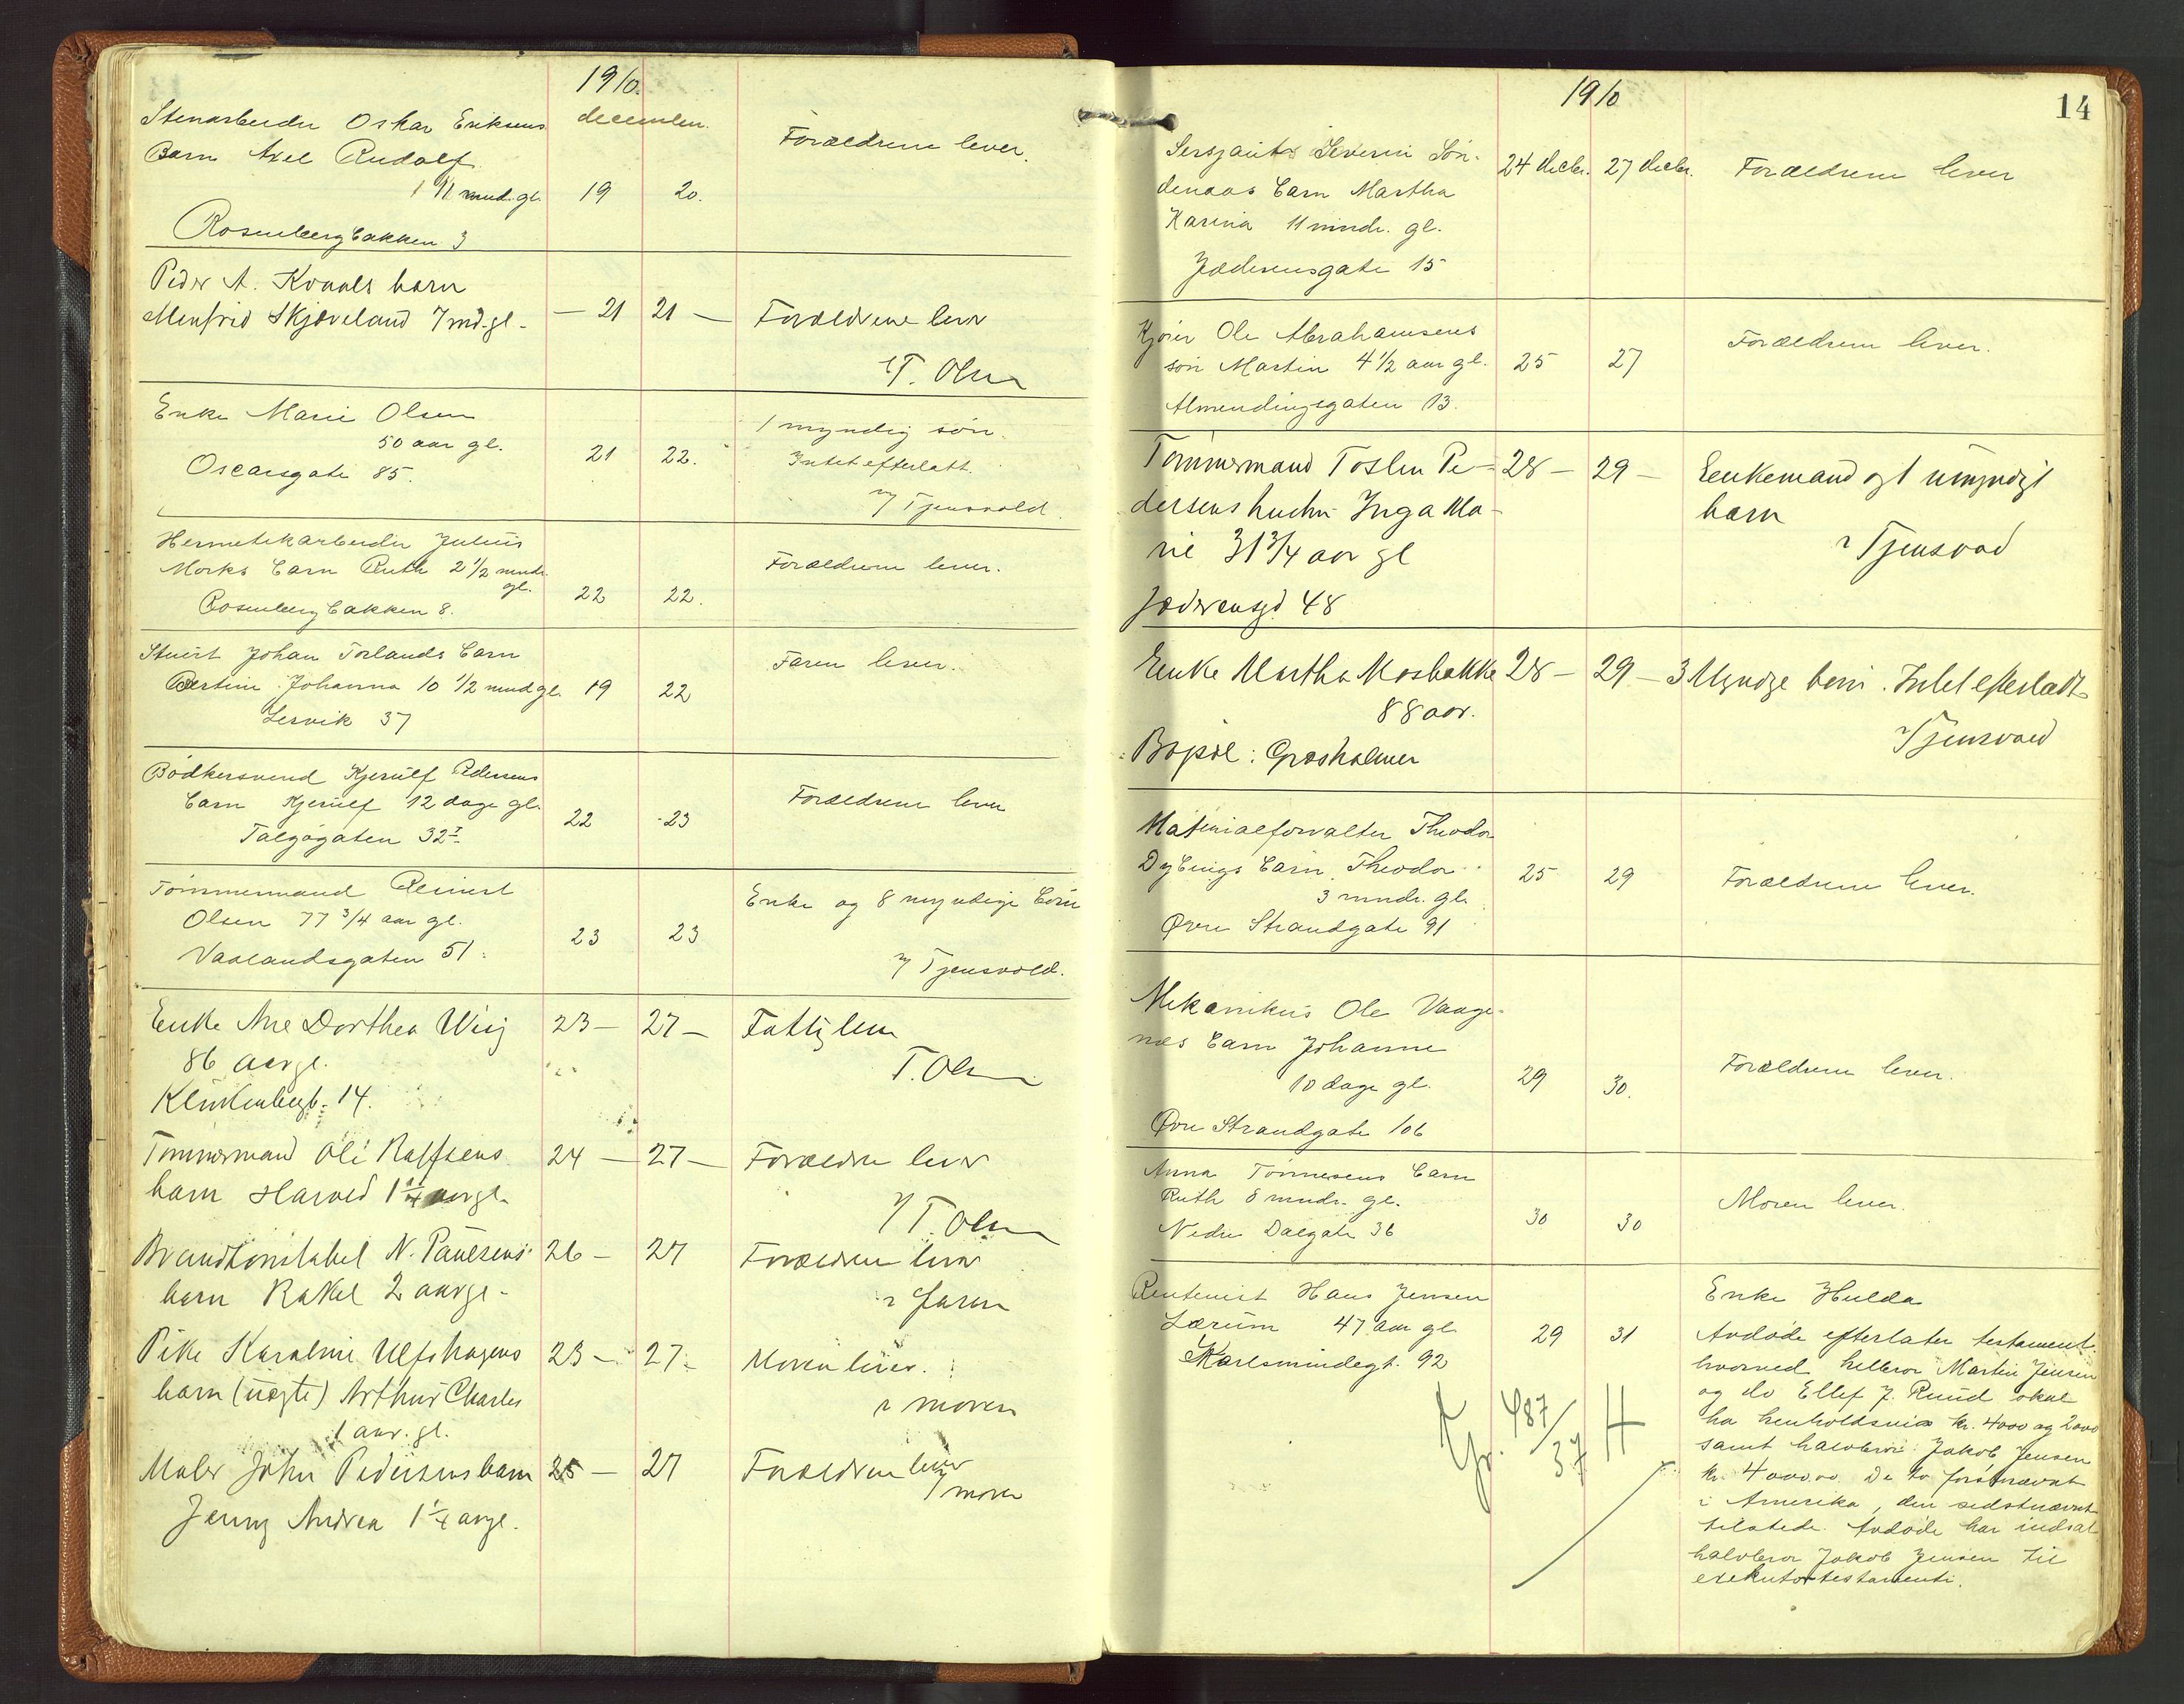 1910.
december.
Stenarbeider Oskar Eriksens
Barn Axel Rudolf
11 mnd. gl. 19 20. Forældrene lever.
Rosenbergbakken 3
Peder A. Kvaals barn
Menfrid Skjæveland 7 md. gl - — 21 21 — Forældrene lever
T. Olsen
Enke Marie Olsen
50 aar gl. 21 22. 1 myndig søn.
Oscarsgate 85. Intet efterlatt.
Tjensvold
Hermetikarbeider Julius
Morks barn Ruth 2 1/2 mndr. gl. 22 22. Forældrene lever.
Rosenbergbakken 8.
Stuert Johan Torlands barn
Bertine Johanna 10 1/2 mnd gl. 19 22 Faren lever.
Lervik 37
Bødkersvend Kjerulf Pedersens
barn Kjerulf 12 dage gl. 22 23 Forældrene lever
Talgøgaten 32 I
Tømmermand Reinert
Olsen 77 3/4 aar gl. 23 23 Enke og 8 myndige børn
Vaalandsgaten 51. Tjensvold.
Enke Ane Dorthea Wiig 23 — 27 — Fattiglem
86 aar gl. T. Olsen
14.
Tømmermand Ole Raffsens 24 — 27 — Forældre lever
barn Harald 1 1/4 aar gl. T. Olsen
Brandkonstabel N. Paulsens 26 — 27 Forældrene lever
barn Rakel 2 aar gl - Faren
Pike Karoline Ulfshagens 23 — 27 - Moren lever.
barn (uægte) Arthur Charles moren
1 aar. gl.
Maler John Pedersens barn 25 — 27 Forældrene lever
Jenny Andrea 1 1/4 aargl. moren
1910
14
Sersjant Severin Søn-
denaas barn Martha 24 decbr. 27 decbr. Forældrene lever
Karina 11 mndr. gl.
Jæderensgate 15
Kjører Ole Abrahamsens
søn Martin 4 1/2 aar gl. 25 27 Forældrene lever.
Almendingsgaten 13.
Tømmermand Toslen Pe- 28 — 29 — Enkemand og 1 umyndigt
dersens hustru Inga Ma- barn
rie 31 3/4 aar gl Tjensvod
Jæderensgd 48
Enke Martha Mosbakke 28 — 29 — 3 Myndge børn. Intet efterladt
88 aar. Tjensvold
Bopæl: Græsholmen
Materialforvalter Theodor
Dybings barn Theodor 25 29 Forældrene lever.
3 mndr. gl.
Øvre Strandgate 91
Mekanikus Ole Vaage-
næs barn Johanne
10 dage gl. 29 30. Forældrene lever.
Øvre Strandgate 106
Anna Tønnesens barn
Ruth 8 mndr. gl. 30 30 Moren lever.
Nedre Dalgate 36
Rentenist Hans Jensen
Lærum 47 aar gl 29 31
Karlsmindegt. 92
Enke Hulda
Avdøde efterlater testament.
hvorved helbror Martin Jensen
og do Ellef J. Ruud skal
ha henholdsvis kr. 4000 og 2000
samt halvbror Jakob Jensen
kr. 4000.00 De to førstnævnt
i Amerika, den sidstnævnt
tilstede. Avdøde har indsat
halvbror Jakob Jensen til
exekutor testamenti.
487/37
H